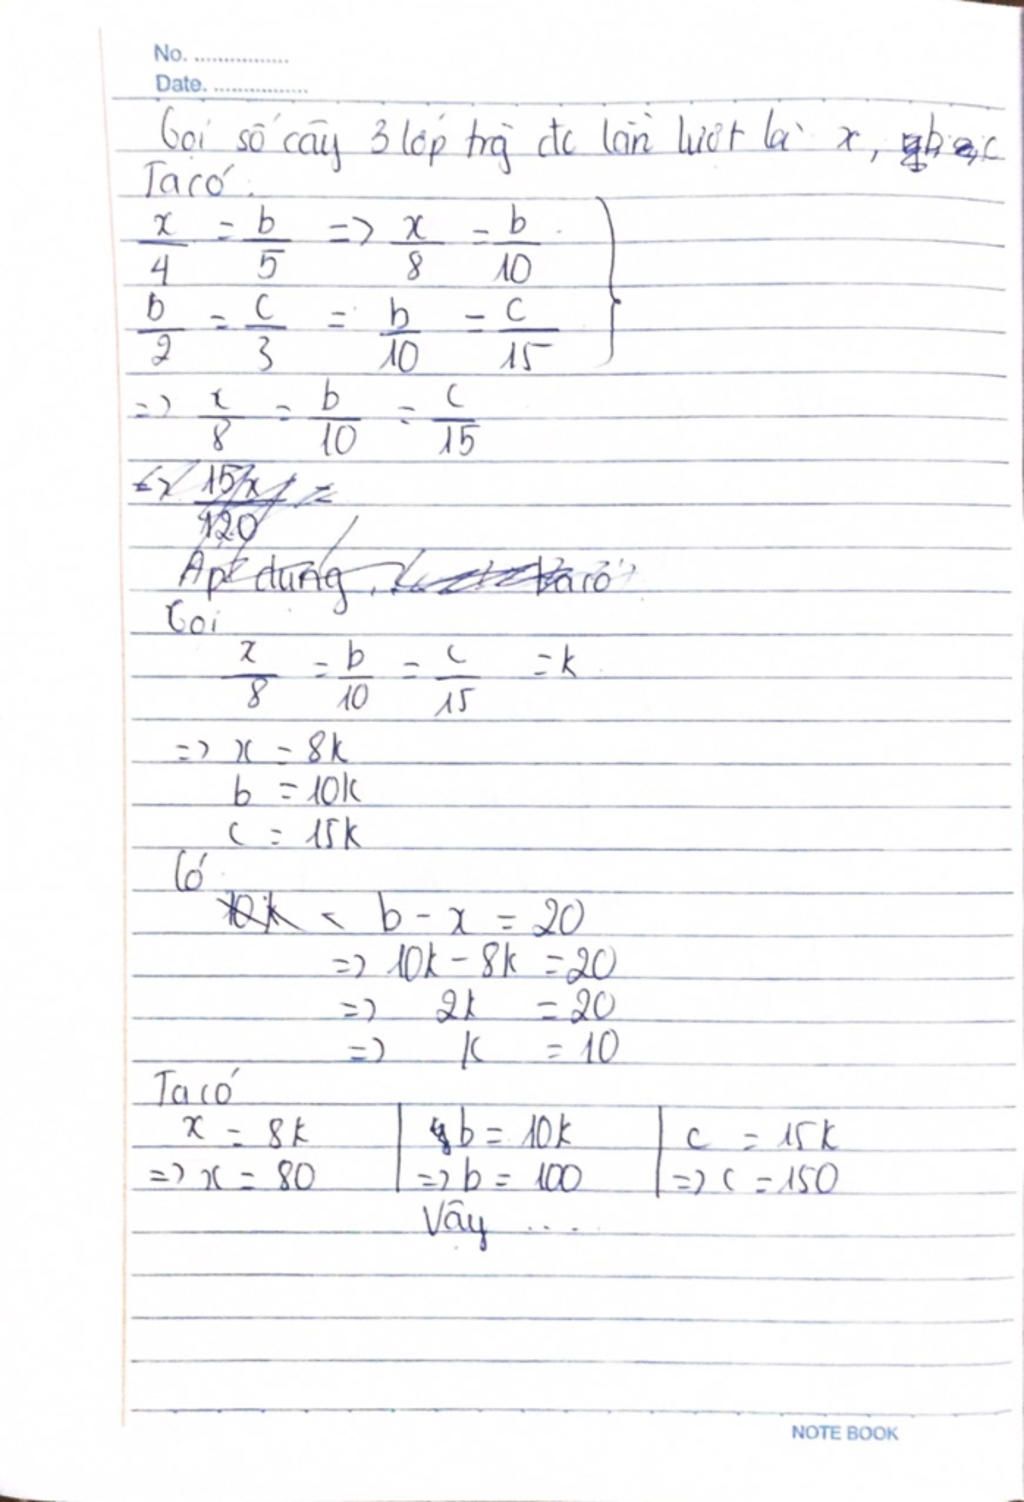 No. ................
Date. ................
Gọi số cây 3 lớp trồng đc lần lượt là x, b, c
Ta có.
x/4 = b/5 => x/8 = b/10
b/2 = c/3 = b/10 = c/15
=> x/8 = b/10 = c/15
15x/120 =
Áp dụng, ta có
Gọi
x/8 = b/10 = c/15 = k
=> x = 8k
b = 10k
c = 15k
Có
10k b - x = 20
=> 10k - 8k = 20
=> 2k = 20
=> k = 10
Ta có
x = 8k | b = 10k | c = 15k
=> x = 80 | => b = 100 | => c = 150
Vậy ....
NOTE BOOK